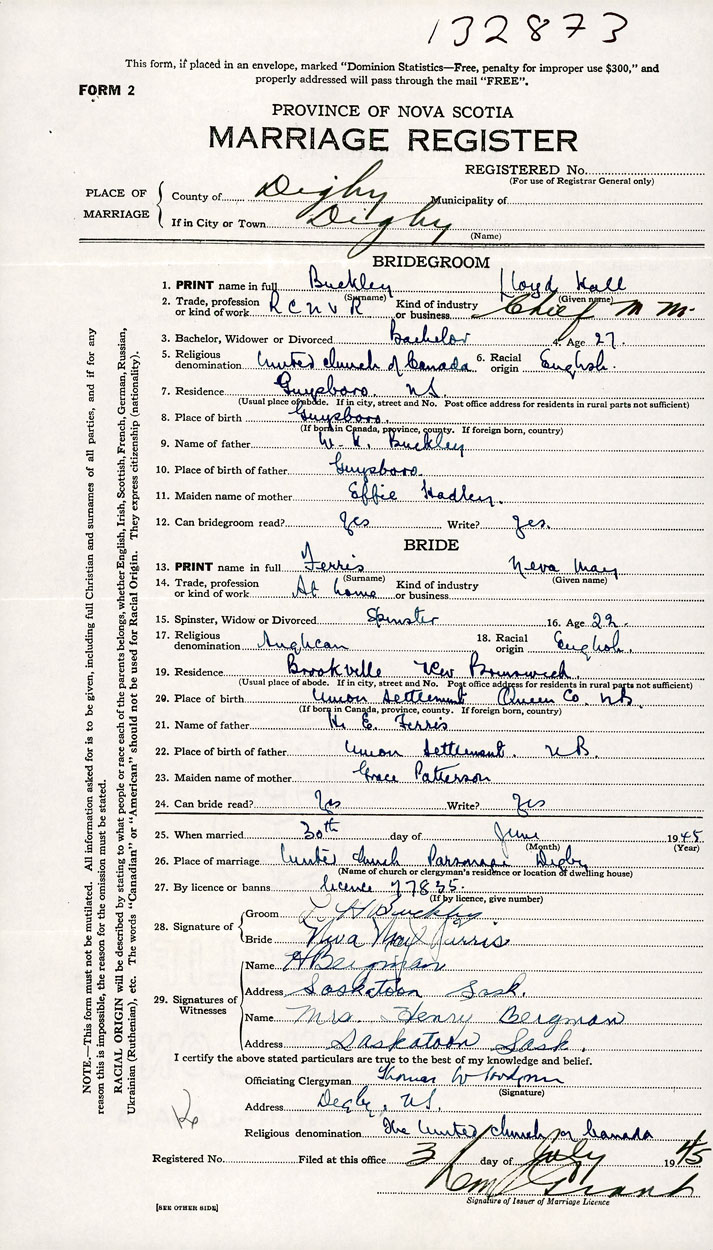 132873
This form, if placed in an envelope, marked "Dominion Statistics—Free, penalty for improper use $300," and
properly addressed will pass through the mail "FREE".
FORM 2
PROVINCE OF NOVA SCOTIA
MARRIAGE REGISTER
REGISTERED No.
(For use of Registrar General only)
PLACE OF MARRIAGE
County of Digby Municipality of
If in City or Town Digby
(Name)
BRIDEGROOM
1. PRINT name in full Buckley Lloyd Hall
(Surname) (Given name)
2. Trade, profession or kind of work R C N V R Kind of industry or business Chief M M.
3. Bachelor, Widower or Divorced Bachelor 4. Age 27.
5. Religious denomination United Church of Canada 6. Racial origin English.
7. Residence Guysboro. NS
(Usual place of abode. If in city, street and No. Post office address for residents in rural parts not sufficient)
8. Place of birth Guysboro.
(If born in Canada, province, county. If foreign born, country)
9. Name of father W. H. Buckley
10. Place of birth of father Guysboro.
11. Maiden name of mother Effie Hadley.
12. Can bridegroom read? Yes Write? Yes.
BRIDE
13. PRINT name in full Ferris Neva May
(Surname) (Given name)
14. Trade, profession or kind of work At home Kind of industry or business
15. Spinster, Widow or Divorced Spinster 16. Age 22.
17. Religious denomination Anglican 18. Racial origin English.
19. Residence Brookville New Brunswick.
(Usual place of abode. If in city, street and No. Post office address for residents in rural parts not sufficient)
20. Place of birth Union Settlement Queen Co. NB.
(If born in Canada, province, county. If foreign born, country)
21. Name of father H. E. Ferris
22. Place of birth of father Union Settlement. NB.
23. Maiden name of mother Grace Patterson
24. Can bride read? Yes Write? Yes
25. When married 30th day of June 1945
(Month) (Year)
26. Place of marriage United Church Parsonage Digby
(Name of church or clergyman's residence or location of dwelling house)
27. By licence or banns licence 77835.
(If by licence, give number)
28. Signature of
Groom L H Buckley
Bride Neva May Ferris
29. Signatures of Witnesses
Name H Bergman
Address Saskatoon Sask.
Name Mrs. Henry Bergman
Address Saskatoon Sask.
I certify the above stated particulars are true to the best of my knowledge and belief.
Officiating Clergyman Thomas W
(Signature)
Address Digby, N.S.
Religious denomination The United Church of Canada
Registered No. Filed at this office 3 day of July 1945
Grant
Signature of Issuer of Marriage Licence
[SEE OTHER SIDE]
NOTE.—This form must not be mutilated. All information asked for is to be given, including full Christian and surnames of all parties, and if for any
reason this is impossible, the reason for the omission must be stated.
RACIAL ORIGIN will be described by stating to what people or race each of the parents belongs, whether English, Irish, Scottish, French, German, Russian,
Ukrainian (Ruthenian), etc. The words "Canadian" or "American" should not be used for Racial Origin. They express citizenship (nationality).